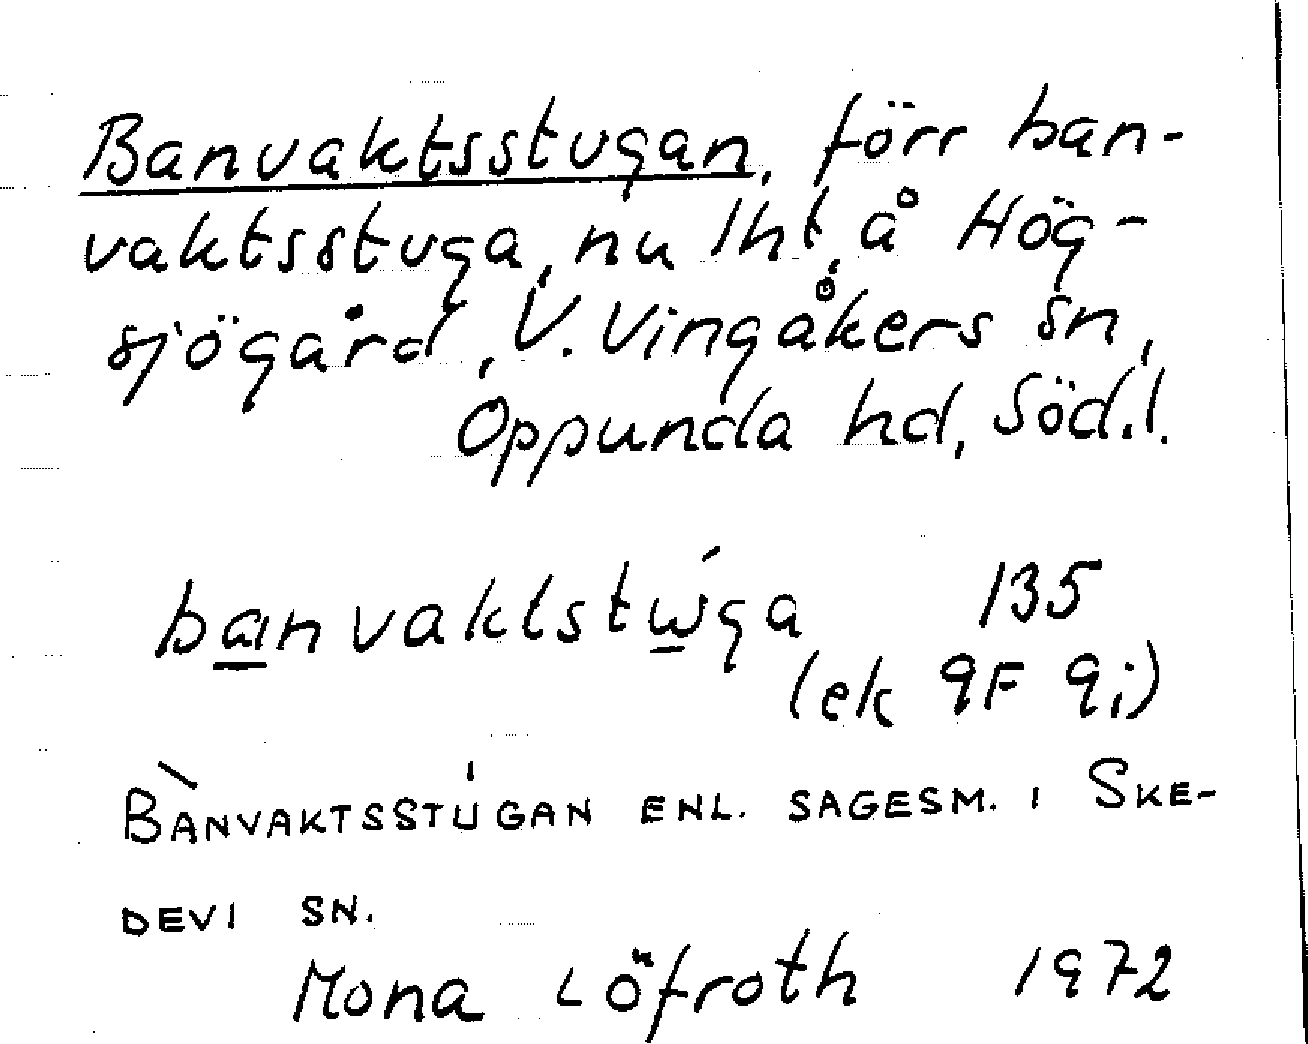 Banvaktsstugan, förr ban-
vaktsstuga, nu lht, å Hög-
sjögård, V. Vingåkers sn,
Oppunda hd, Söd.l.
banvaktstúga 135
(ek 9F 9i)
BÀNVAKTSSTÚGAN ENL. SAGESM. I SKE-
DEVI SN.
Mona Löfroth 1972